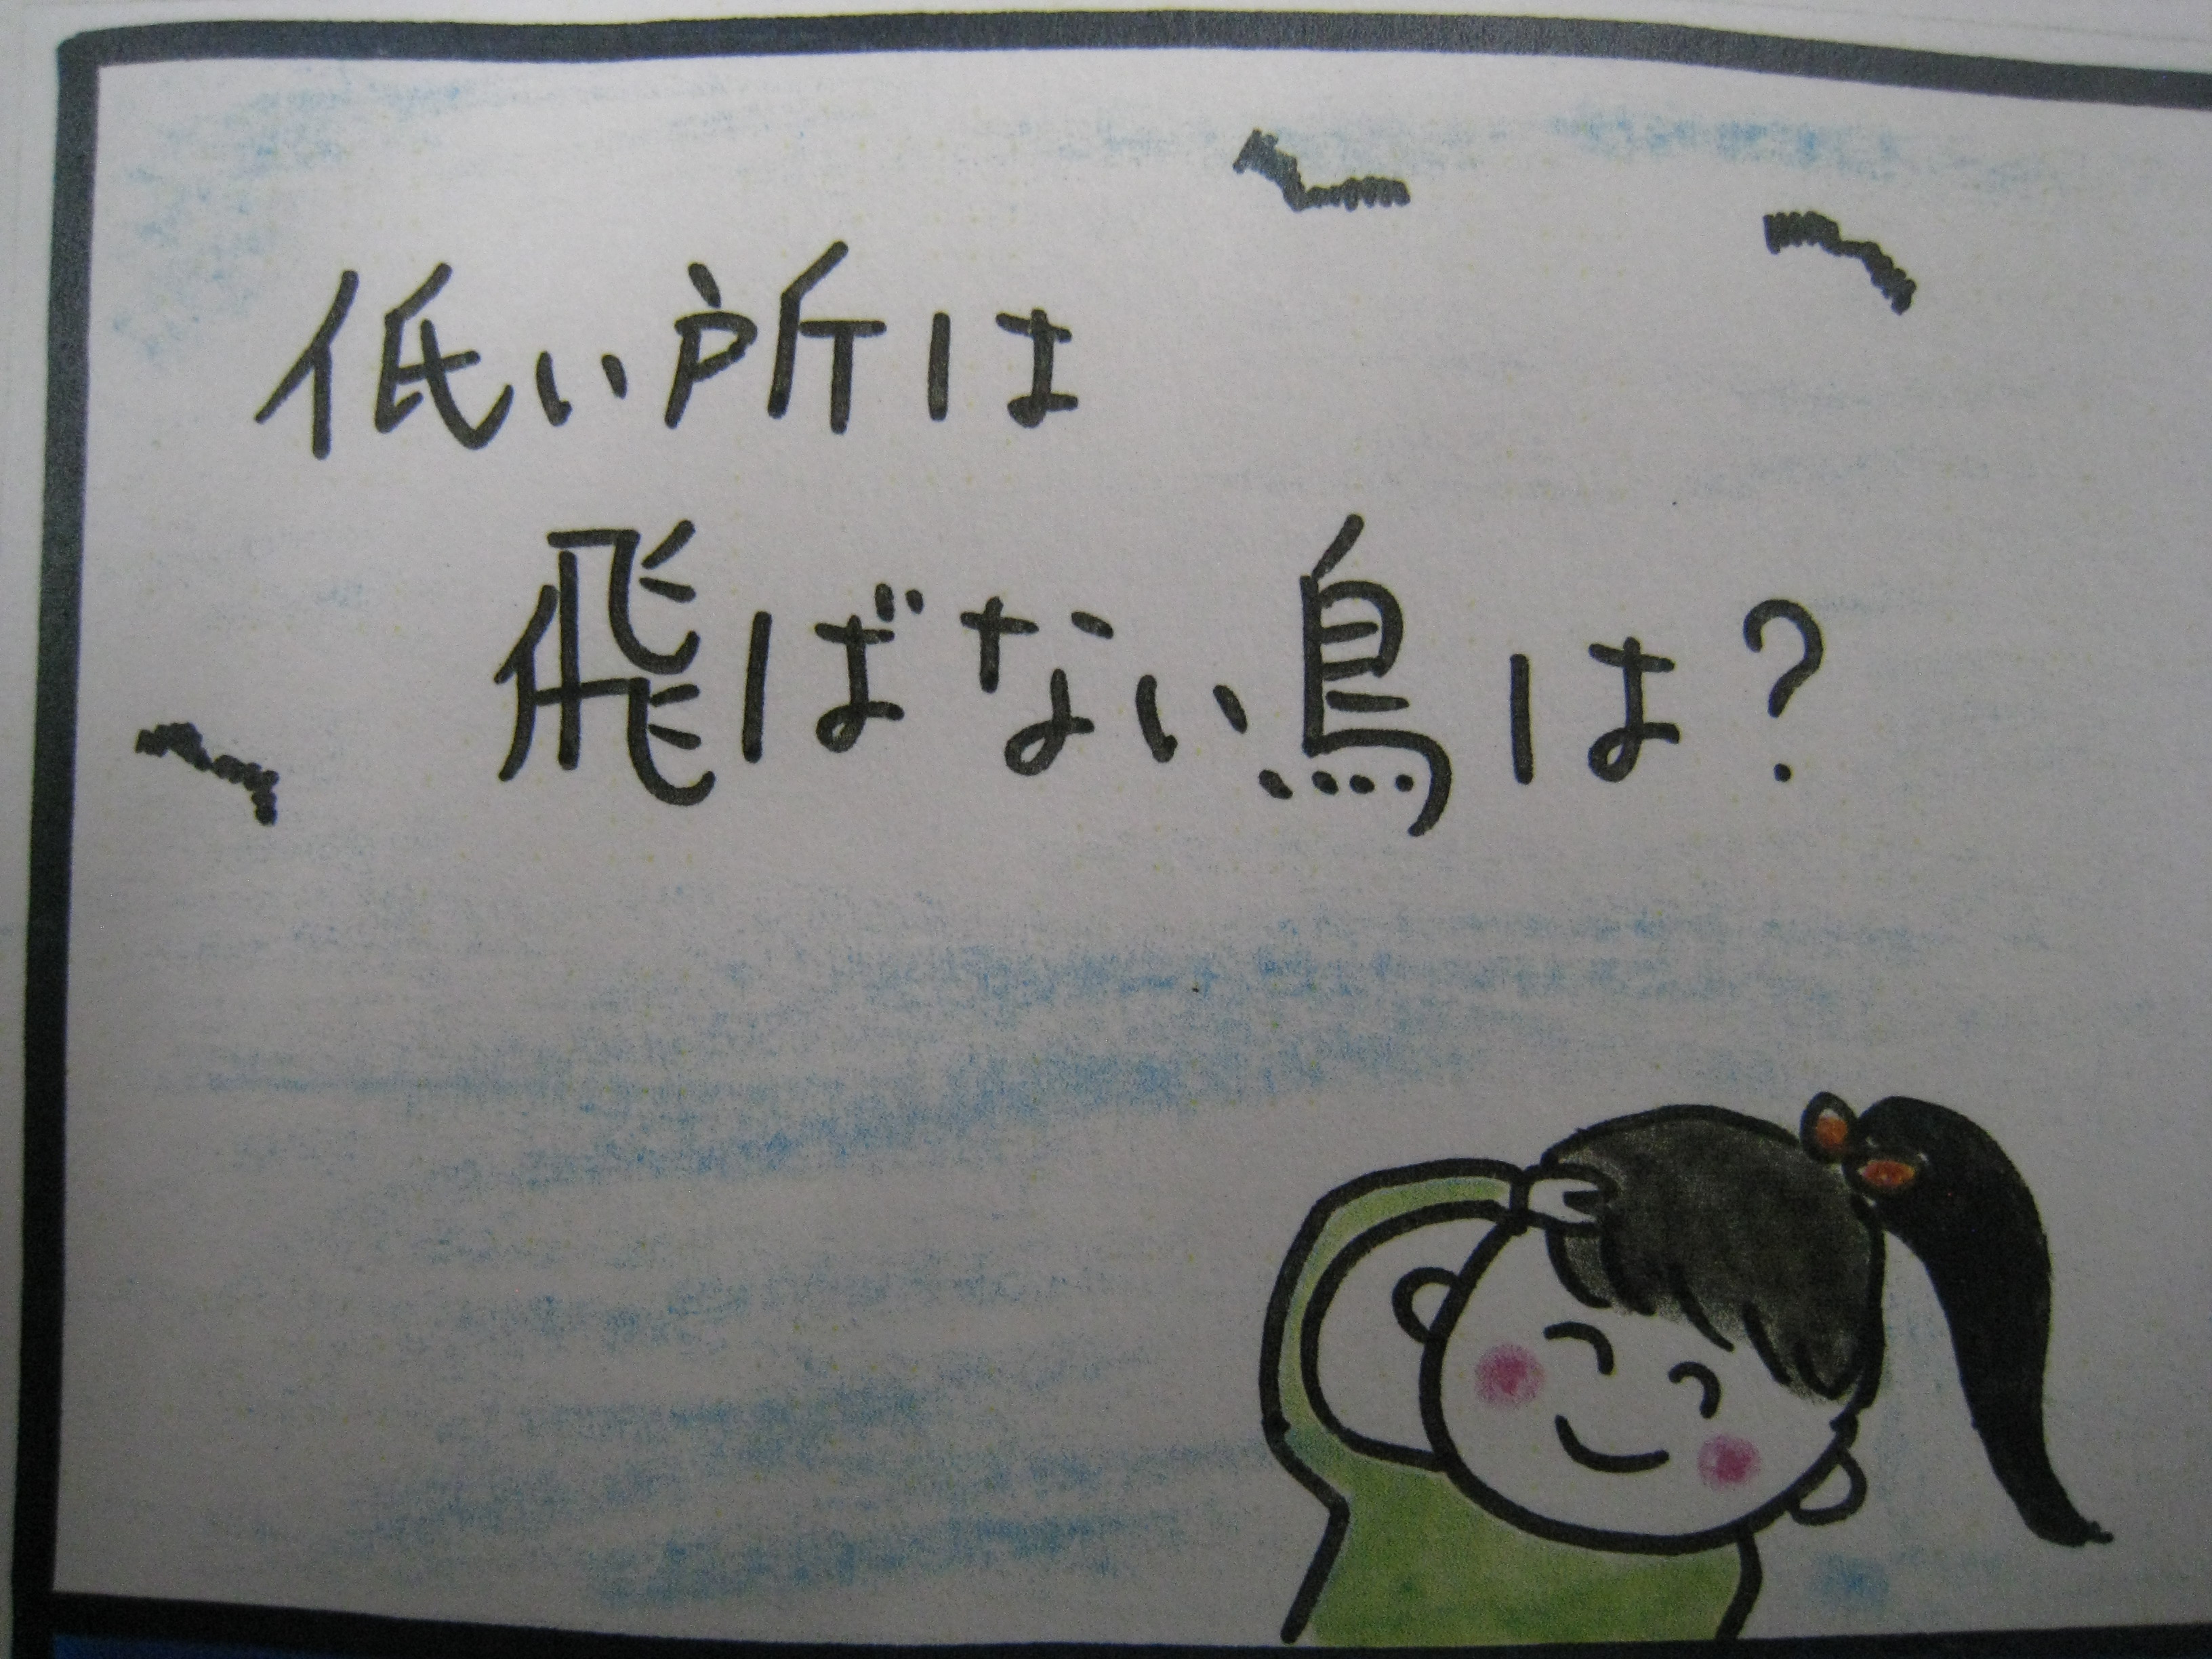 低い所は
飛ばない鳥は?